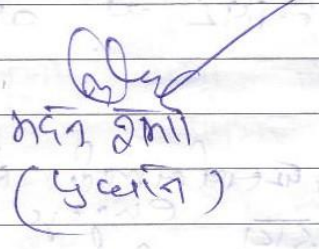 मदन शर्मा
(प्रधान)